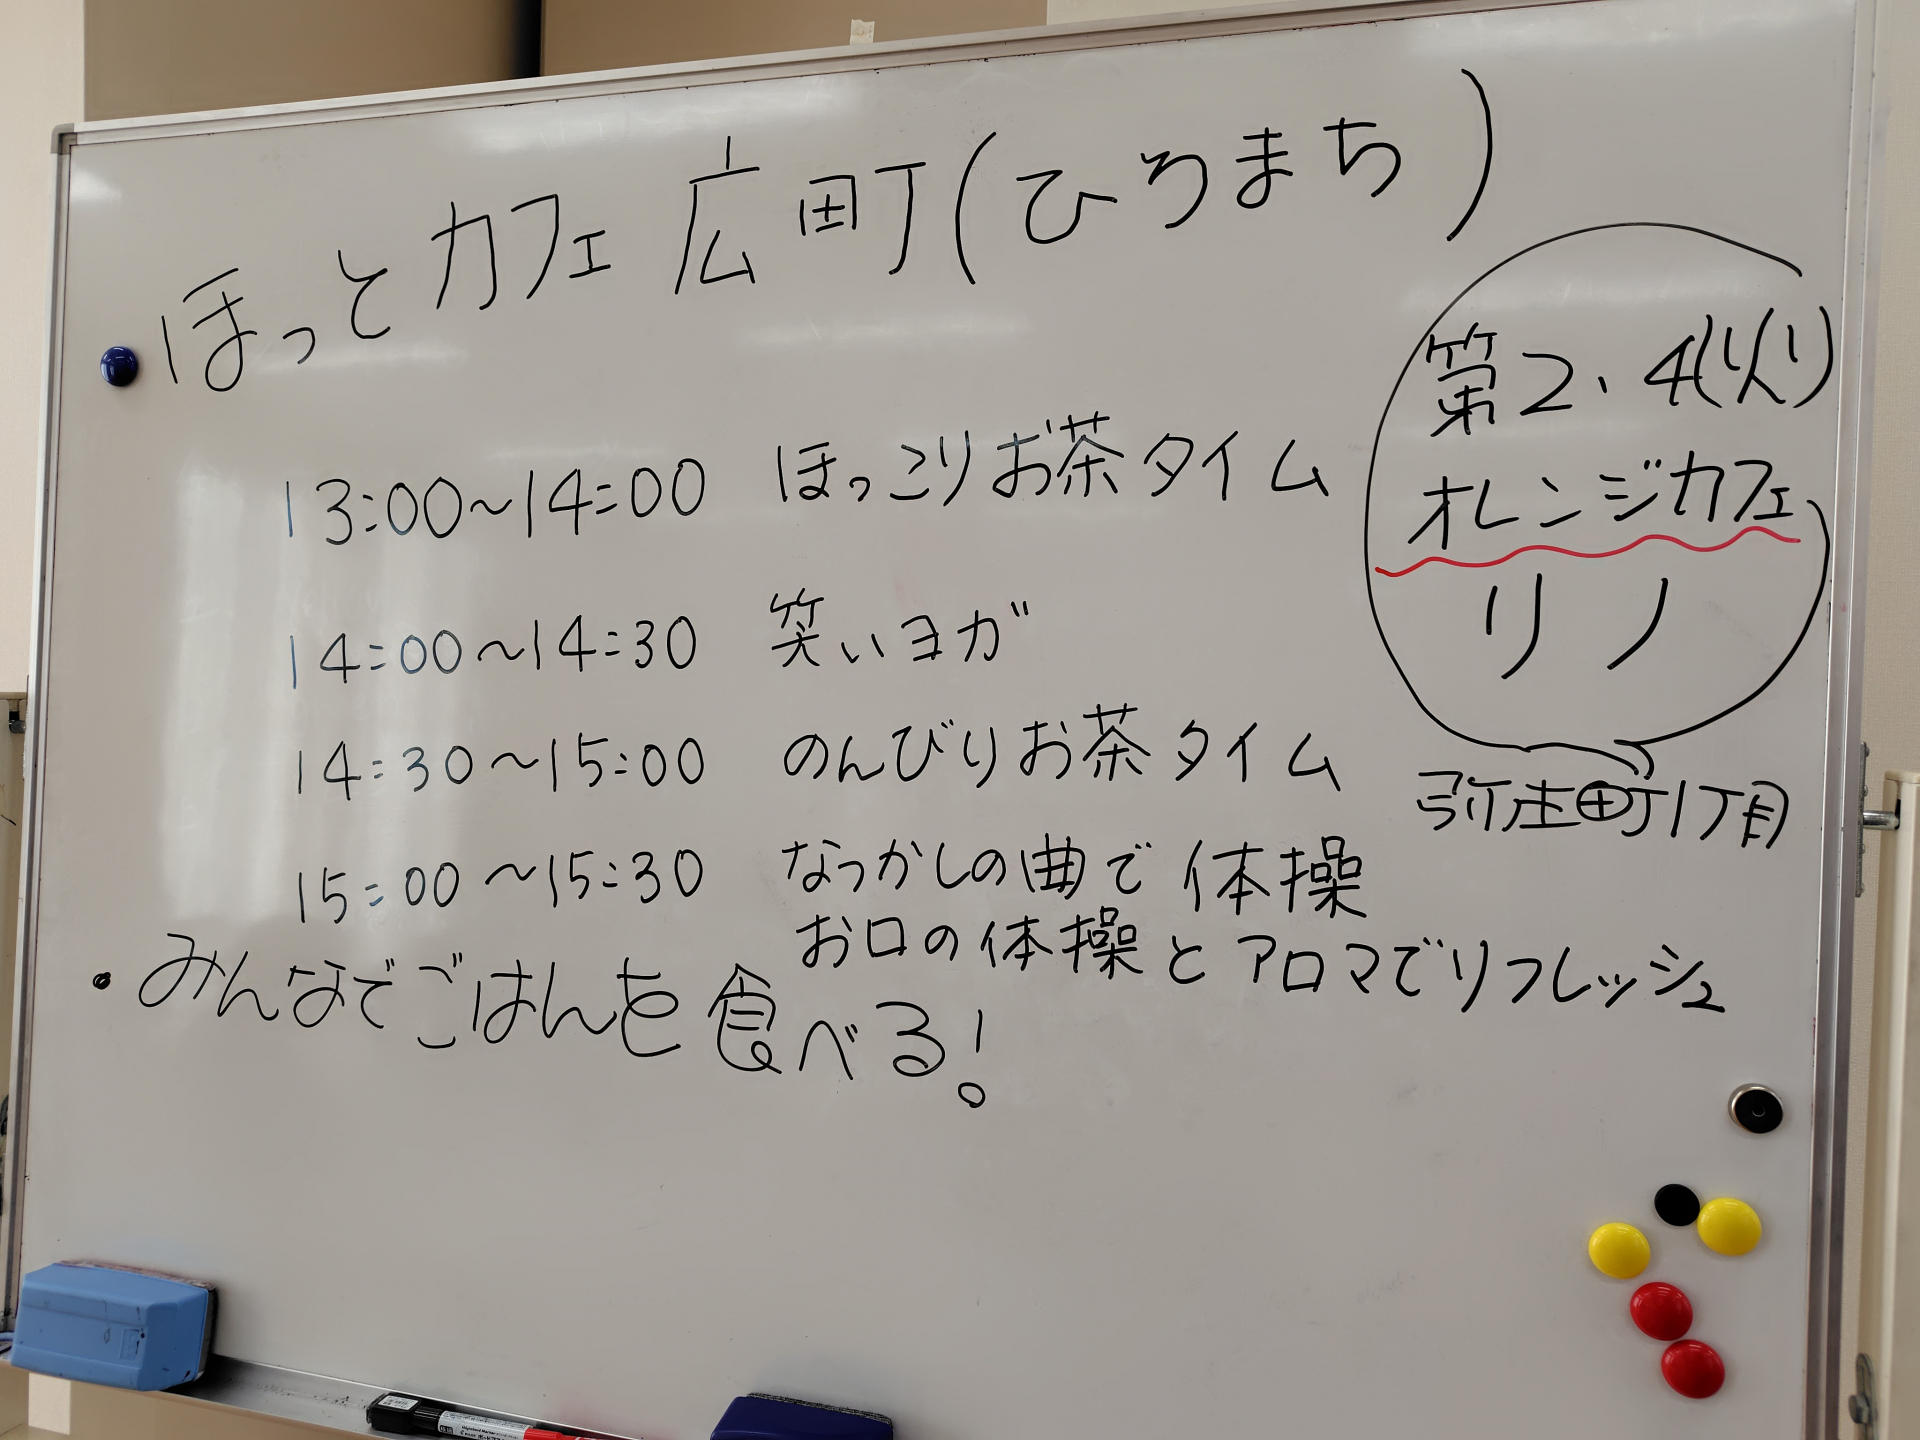 ほっとカフェ広町(ひろまち)
13:00~14:00 ほっこりお茶タイム
14:00~14:30 笑いヨガ
14:30~15:00 のんびりお茶タイム
15:00~15:30 なつかしの曲で体操
お口の体操とアロマでリフレッシュ
・みんなでごはんを食べる!
第2、4(火)
オレンジカフェ
リノ
弥生町1丁目